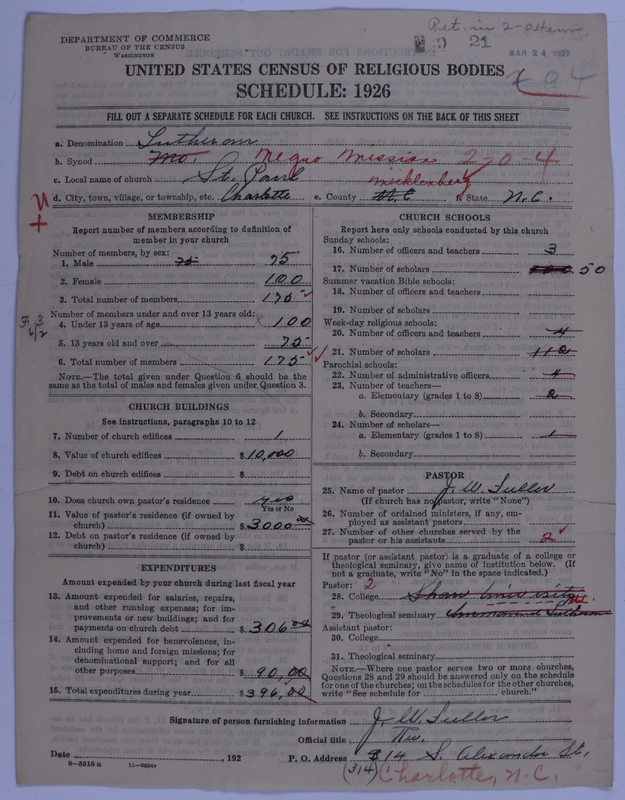 Ret. in 2-04
21
MAR 24 1927
DEPARTMENT OF COMMERCE
BUREAU OF THE CENSUS
WASHINGTON
UNITED STATES CENSUS OF RELIGIOUS BODIES
04
SCHEDULE: 1926
FILL OUT A SEPARATE SCHEDULE FOR EACH CHURCH. SEE INSTRUCTIONS ON THE BACK OF THIS SHEET
a. Denomination Lutheran
b. Synod Mo. Negro Mission 2-0-4
c. Local name of church St. Paul
Mecklenburg
d. City, town, village, or township, etc. Charlotte e. County N.C f. State N.C.
MEMBERSHIP
Report number of members according to definition of
member in your church
Number of members, by sex:
1. Male 75 75
2. Female 100
3. Total number of members 175
Number of members under and over 13 years old:
4. Under 13 years of age 100
5. 13 years old and over 75
6. Total number of members 175
NOTE.—The total given under Question 6 should be the
same as the total of males and females given under Question 3.
CHURCH BUILDINGS
See instructions, paragraphs 10 to 12
7. Number of church edifices 1
8. Value of church edifices $ 10,000
9. Debt on church edifices $
10. Does church own pastor's residence yes
Yes or No
11. Value of pastor's residence (if owned by
church) $ 3000 00
12. Debt on pastor's residence (if owned by
church) $
EXPENDITURES
Amount expended by your church during last fiscal year
13. Amount expended for salaries, repairs,
and other running expenses; for im-
provements or new buildings; and for
payments on church debt $ 306 00
14. Amount expended for benevolences, in-
cluding home and foreign missions; for
denominational support; and for all
other purposes $ 90,00
15. Total expenditures during year $ 396,00
CHURCH SCHOOLS
Report here only schools conducted by this church
Sunday schools:
16. Number of officers and teachers 3
17. Number of scholars 50
Summer vacation Bible schools:
18. Number of officers and teachers
19. Number of scholars
Week-day religious schools:
20. Number of officers and teachers 4
21. Number of scholars 112
Parochial schools:
22. Number of administrative officers 1
23. Number of teachers—
a. Elementary (grades 1 to 8) 2
b. Secondary
24. Number of scholars—
a. Elementary (grades 1 to 8) 1
b. Secondary
PASTOR
25. Name of pastor J. W. Fuller
(If church has no pastor, write "None")
26. Number of ordained ministers, if any, em-
ployed as assistant pastors
27. Number of other churches served by the
pastor or his assistants 2
If pastor (or assistant pastor) is a graduate of a college or
theological seminary, give name of institution below. (If
not a graduate, write "No" in the space indicated.)
Pastor: 2
28. College Shaw University
29. Theological seminary Immanuel Lutheran
Assistant pastor:
30. College
31. Theological seminary
NOTE.—Where one pastor serves two or more churches,
Questions 28 and 29 should be answered only on the schedule
for one of the churches; on the schedules for the other churches,
write "See schedule for church."
Signature of person furnishing information J. W. Fuller
Official title Rev.
Date , 192 P. O. Address 314 S. Alexander St,
8—5515 a (314) Charlotte, N.C.